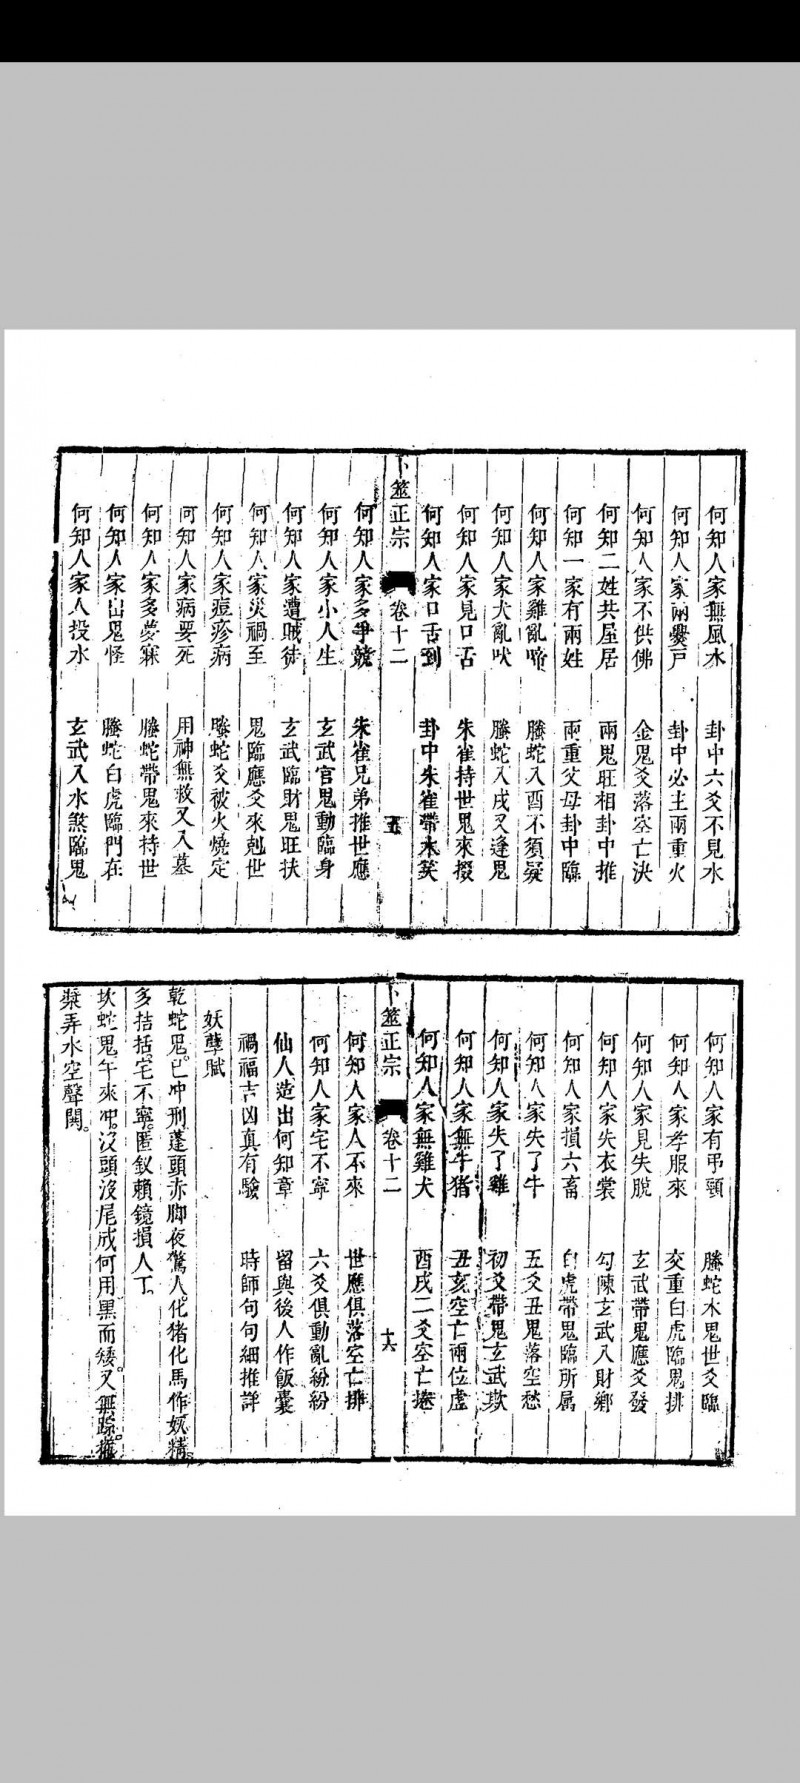 何知人家無風水 卦中六爻不見水
何知人家兩爨戸 卦中必主兩重火
何知人家不供佛 金鬼爻落空亡決
何知二姓共屋居 兩鬼旺相卦中推
何知一家有兩姓 兩重父母卦中臨
何知人家雞亂啼 螣蛇入酉不須疑
何知人家犬亂吠 螣蛇入戌又逢鬼
何知人家見口舌 朱雀持世鬼來掇
何知人家口舌到 卦中朱雀帶木笑
卜筮正宗 卷十二
何知人家多爭競 朱雀兄弟推世應
何知人家小人生 玄武官鬼動臨身
何知人家遭賊徒 玄武臨財鬼旺扶
何知人家災禍至 鬼臨應爻來剋世
何知人家痘疹病 螣蛇爻被火燒定
何知人家病要死 用神無救又入墓
何知人家多夢寐 螣蛇帶鬼來持世
何知人家出鬼怪 螣蛇白虎臨門在
何知人家人投水 玄武入水煞臨鬼
何知人家有弔頸 螣蛇木鬼世爻臨
何知人家孝服來 交重白虎臨鬼排
何知人家見失脫 玄武帶鬼應爻發
何知人家失衣裳 勾陳玄武入財鄉
何知人家損六畜 白虎帶鬼臨所屬
何知人家失了牛 五爻丑鬼落空愁
何知人家失了雞 初爻帶鬼玄武欺
何知人家無牛猪 丑亥空亡兩位虛
何知人家無雞犬 酉戌二爻空亡捲
卜筮正宗 卷十二 十六
何知人家人不來 世應俱落空亡排
何知人家宅不寧 六爻俱動亂紛紛
仙人造出何知章 留與後人作飯囊
禍福吉凶真有驗 時師句句細推詳
妖孽賦
乾蛇鬼。巳冲刑蓬頭赤脚夜驚人。化猪化馬作妖精。
多拮括。宅不寧。匿釵賴鏡損人丁。
坎蛇鬼午來冲。沒頭沒尾成何用黑而矮。又無踪。
槳弄水空聲鬨。